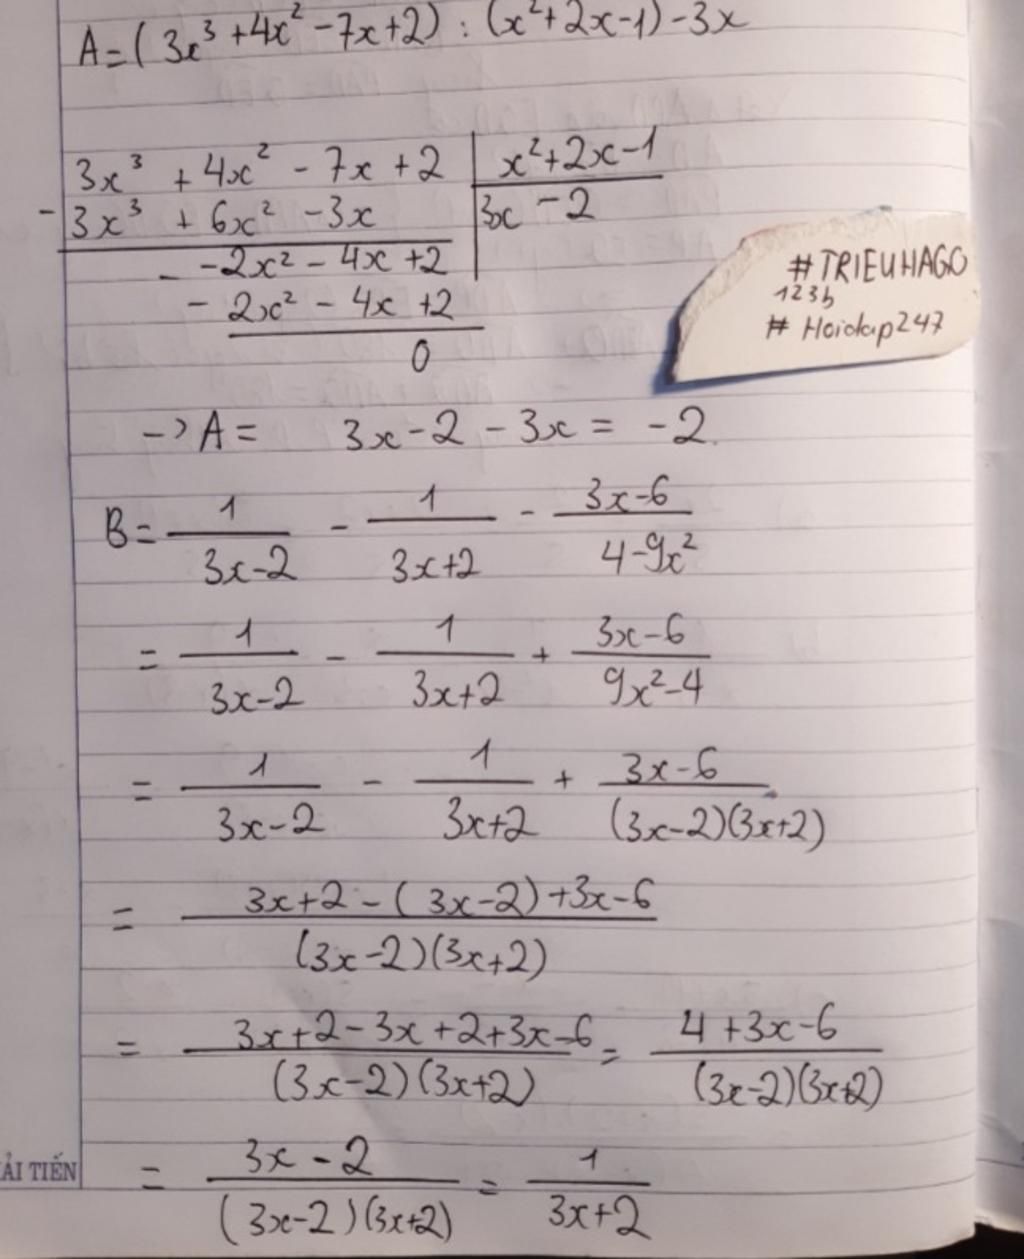 A = (3x³ + 4x² - 7x + 2) : (x² + 2x - 1) - 3x
3x³ + 4x² - 7x + 2 | x² + 2x - 1
- 3x³ + 6x² - 3x | 3x - 2
- -2x² - 4x + 2
- 2x² - 4x + 2
0
#TRIEUHAGO
123h
# Hoidap247
-> A = 3x - 2 - 3x = -2.
B = 1/(3x-2) - 1/(3x+2) - (3x-6)/(4-9x²)
= 1/(3x-2) - 1/(3x+2) + (3x-6)/(9x²-4)
= 1/(3x-2) - 1/(3x+2) + (3x-6)/((3x-2)(3x+2))
= (3x+2-(3x-2)+3x-6)/((3x-2)(3x+2))
= (3x+2-3x+2+3x-6)/((3x-2)(3x+2)) = (4+3x-6)/((3x-2)(3x+2))
= (3x-2)/((3x-2)(3x+2)) = 1/(3x+2)
ẢI TIẾN